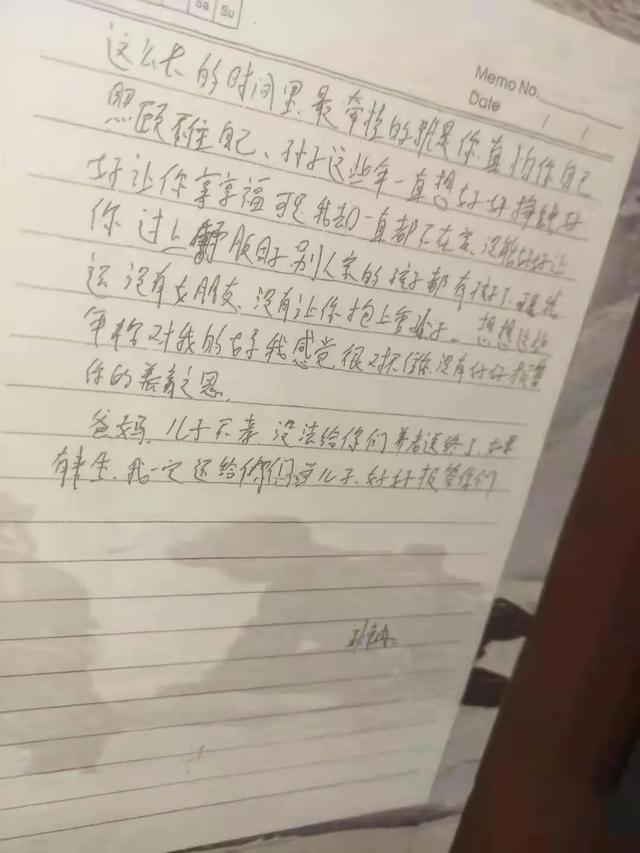 Sa Su
Memo No.
Date / /
这么长的时间里,最牵挂的就是你,真怕你自己
照顾不自己、孙子这些年一直想好好挣钱好
好让你享享福可是我却一直都不在家,没能好好让
你过上舒服日子.别人家的孩子都有孩子了,可是我
还没有女朋友、没有让你抱上重孙子。想想这些
年你对我的好我感觉很对不住你没有好好报答
你的养育之恩.
爸妈,儿子不孝没法给你们养老送终了,如果
有来生,我一定还给你们当儿子.好好报答你们